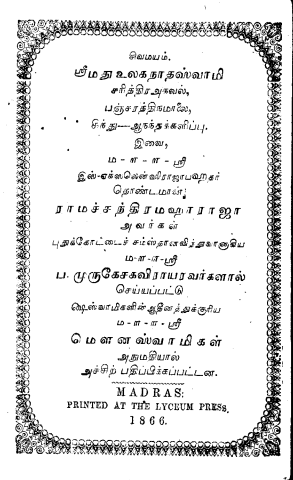 சிவமயம்.
ஸ்ரீமதுஉலகநாதஸ்வாமி
சரித்திரஅகவல்,
பஞ்சரத்திநமாலை,
சிந்து—ஆநந்தக்களிப்பு.
இவை,
ம-ள-ள-ஸ்ரீ
இஸ்-எக்ஸலென்ஸிராஜாபஹதர்
தொண்டமான்
ராமச்சந்திரமஹாராஜா
அவர்கள்
புதுக்கோட்டைச் சமஸ்தானவித்துவானாகிய
ம-ள-ள-ஸ்ரீ
ப. முருகேசகவிராயரவர்களால்
செய்யப்பட்டு
ஷெஸ்வாமிகளின் ஆதீனத்துக்குரிய
ம-ள-ள-ஸ்ரீ
மௌனஸ்வாமிகள்
அநுமதியால்
அச்சிற் பதிப்பிக்கப்பட்டன.
MADRAS:
PRINTED AT THE LYCEUM PRESS.
1866.